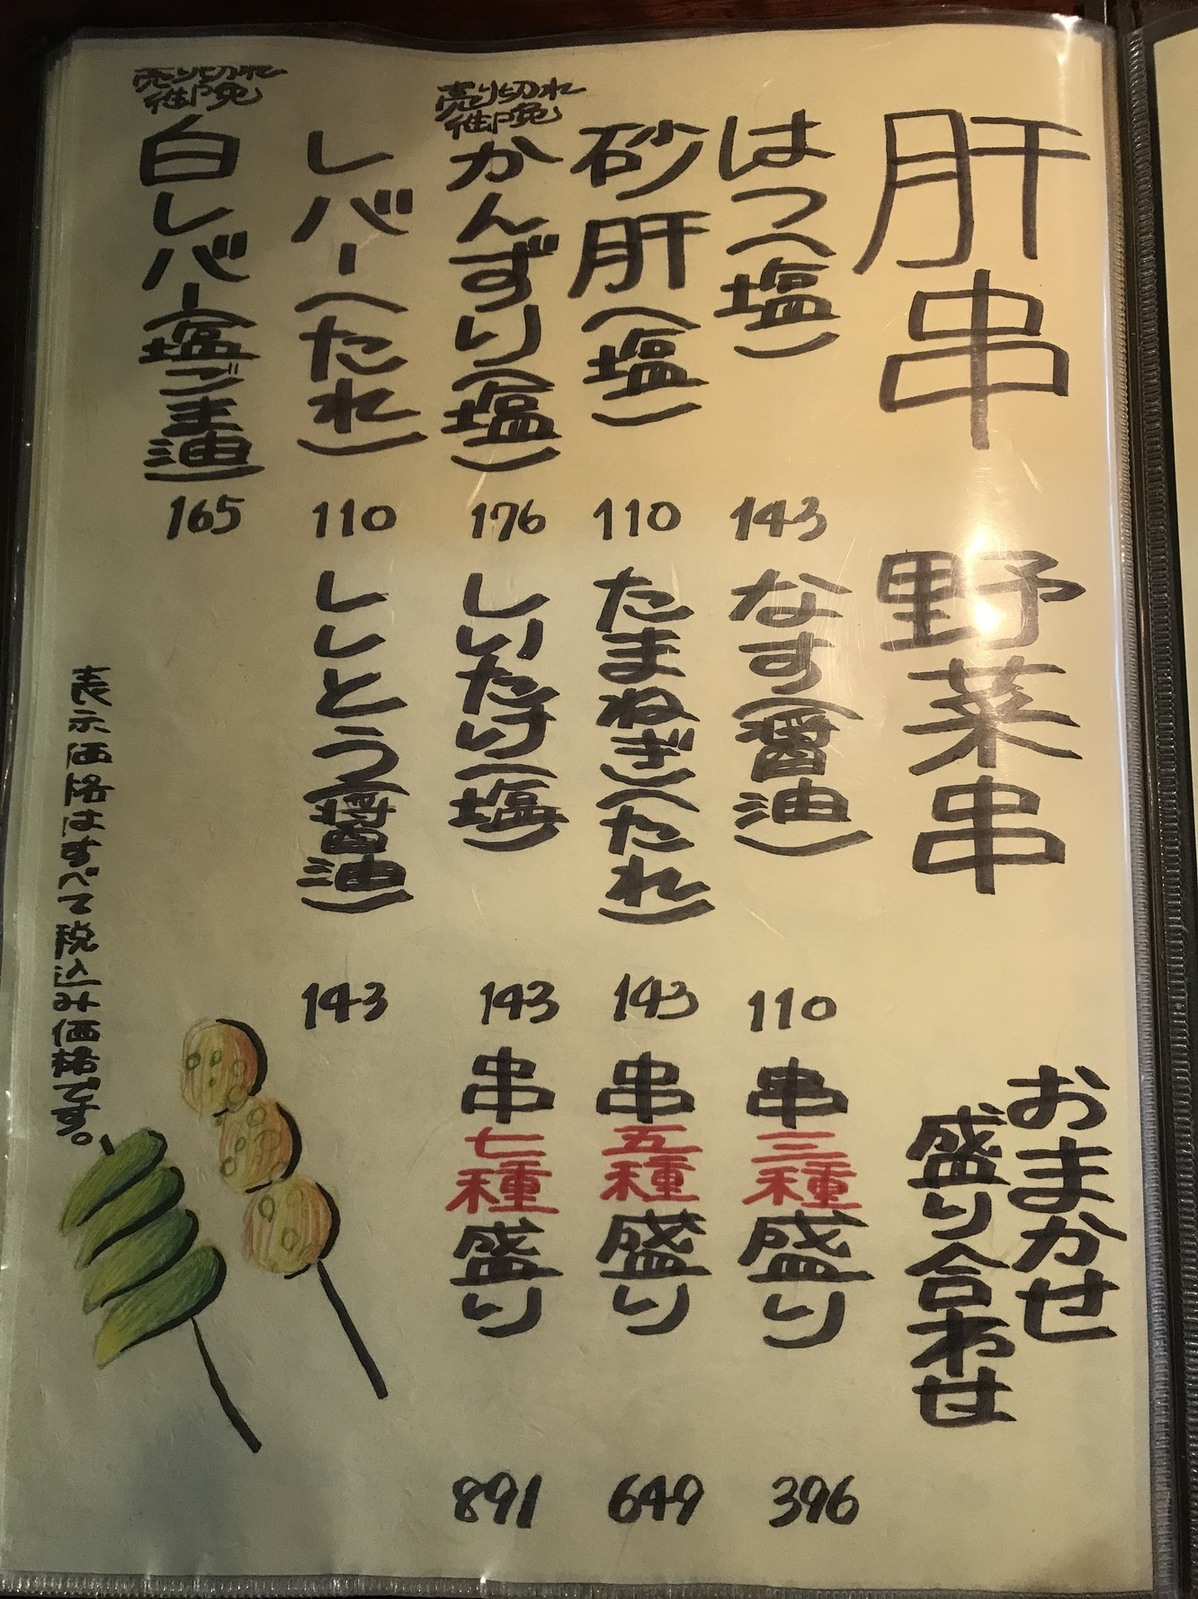 肝串
はつ(塩)
143
砂肝(塩)
110
売り切れ
御免
かんずり(塩)
176
レバー(たれ)
110
売り切れ
御免
白レバー(塩ごま油)
165
野菜串
なす(醤油)
110
たまねぎ(たれ)
143
しいたけ(塩)
143
ししとう(醤油)
143
おまかせ
盛り合わせ
串三種盛り
396
串五種盛り
649
串七種盛り
891
表示価格はすべて税込み価格です。